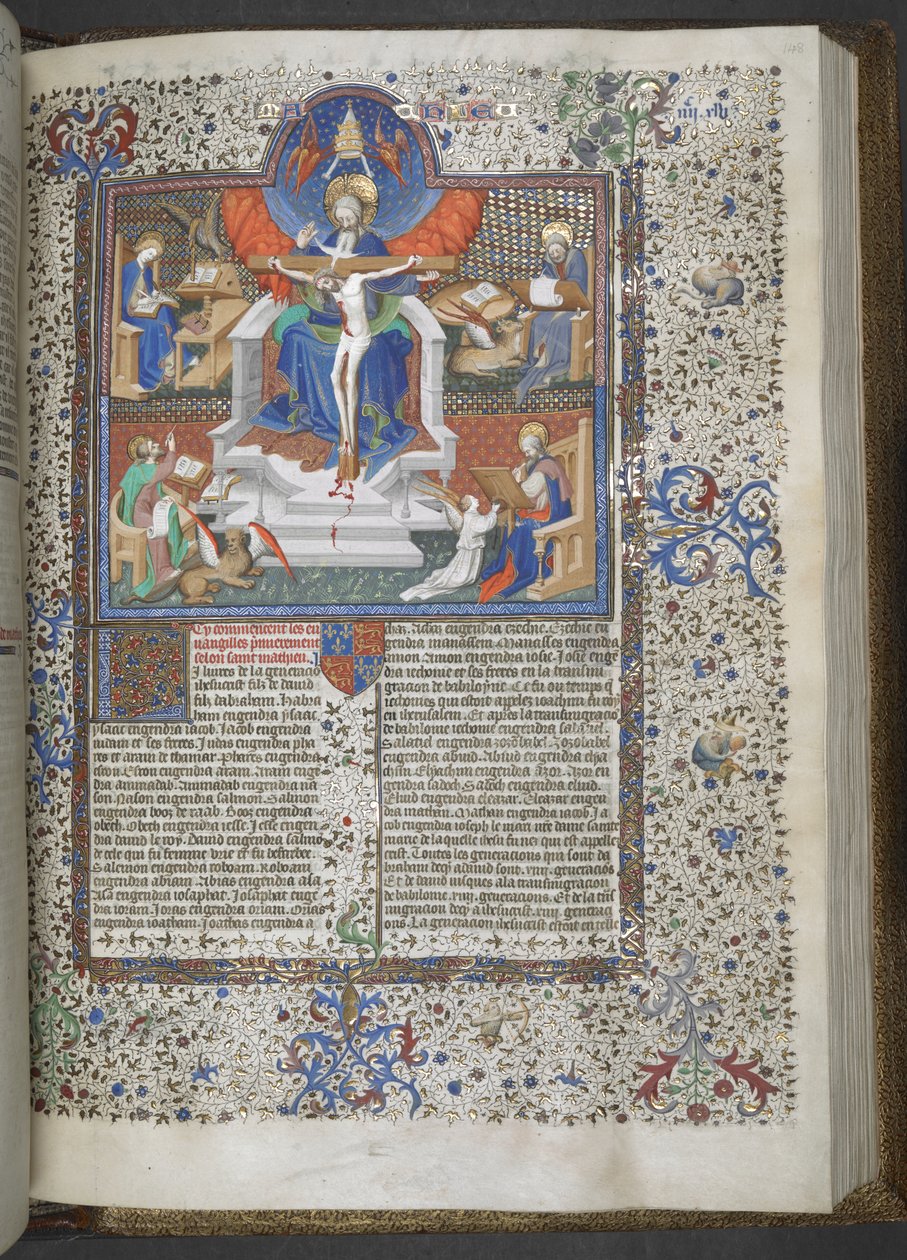 148
Cy commencent les eu
uangilles p̄mierement
selon saint mathieu.
I liures de la generacio
ihesucrist filz de dauid
filz dabraham. Habra
ham engendra ysaac
ysaac engendra iacob. Jacob engendra
iudam et ses freres. Judas engendra pha
res et aram de thamar. phares engendra
esron. Esron engendra aram. Aram enge
dra aminadab. Aminadab engendra
son. Nason engendra salmon. Salmon
engendra booz de raab. Booz engendra
obeth. Obeth engendra iesse. Jesse engen
dra dauid le roy. Dauid engendra salmo
de cele qui fu femme vrie et fu bersabee.
Salemon engendra roboam. Roboam
engendra abiam. Abias engendra asa
Asa engendra iosaphat. Josaphat enge
dra ioram. Joras engendra oziam. Ozias
engendra ioatham. Joathas engendra a
chaz. Achaz engendra ezechie. Ezechie en
gendra manassem. Manasses engendra
amon. Amon engendra iosie. Josie enge
dra iechonie et ses freres en la transmi
gracion de babiloyne. Et fu ou temps
en iherusalem. Et apres la transmigracio
de babilonie iechonie engendra salatiel.
Salatiel engendra zorobabel. Zorobabel
engendra abiud. Abiud engendra elia
chim. Eliachim engendra azor. Azor en
gendra sadoch. Sadoch engendra eliud.
Eliud engendra eleazar. Eleazar engen
dra mathan. Mathan engendra iacob. Ja
cob engendra ioseph le mari nr̄e dame sainte
marie de laquelle ihesu fu ne qui est apelle
crist. Toutes les generacions qui sont da
braham
Et de dauid iusques a la transmigracion
de babilonie .xiiij. generacions. Et de la trās
migracion ihesucrist .xiiij. generaci
ons. La generacion ihesucrist estoit en telle